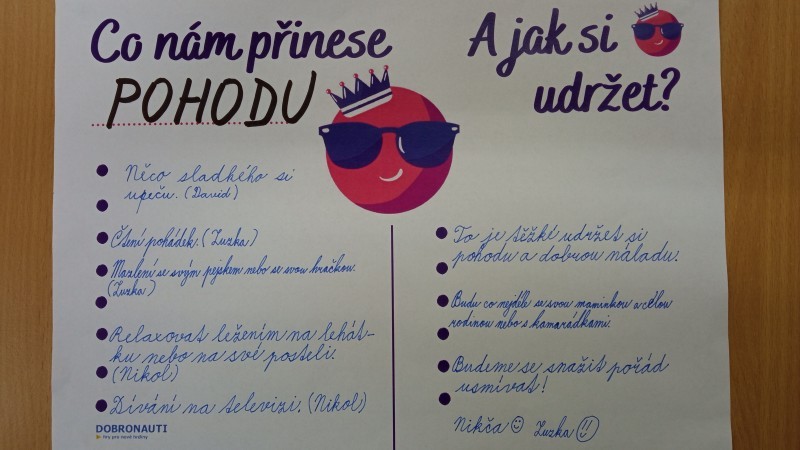 Co nám přinese
POHODU
Něco sladkého si
upeču. (David)
Čtení pohádek. (Zuzka)
Mazlení se svým pejskem nebo se svou hračkou.
(Zuzka)
Relaxovat ležením na lehát-
ku nebo na své posteli.
(Nikol)
Dívání na televizi. (Nikol)
DOBRONAUTI
hry pro nové hrdiny
A jak si
udržet?
To je těžké udržet si
pohodu a dobrou náladu.
Budu co nejdéle se svou maminkou a celou
rodinou nebo s kamarádkami.
Budeme se snažit pořád
usmívat!
Nikča Zuzka